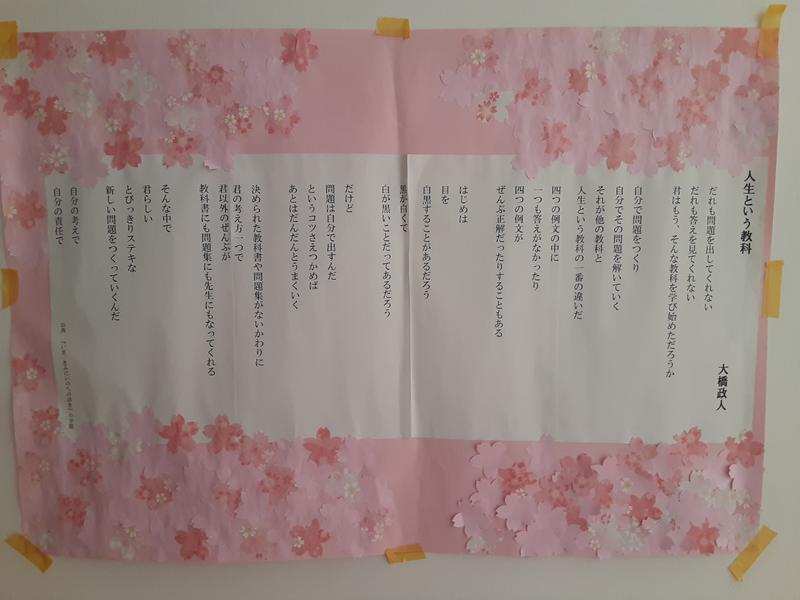 人生という教科
大橋政人
だれも問題を出してくれない
だれも答えを見てくれない
君はもう、そんな教科を学び始めただろうか
自分で問題をつくり
自分でその問題を解いていく
それが他の教科と
人生という教科の一番の違いだ
四つの例文の中に
一つも答えがなかったり
四つの例文が
ぜんぶ正解だったりすることもある
はじめは
目を
白黒することがあるだろう
黒が白くて
白が黒いことだってあるだろう
だけど
問題は自分で出すんだ
というコツさえつかめば
あとはだんだんとうまくいく
決められた教科書や問題集がないかわりに
君の考え方一つで
君以外のぜんぶが
教科書にも問題集にも先生にもなってくれる
そんな中で
君らしい
とびっきりステキな
新しい問題をつくっていくんだ
自分の考えで
自分の責任で